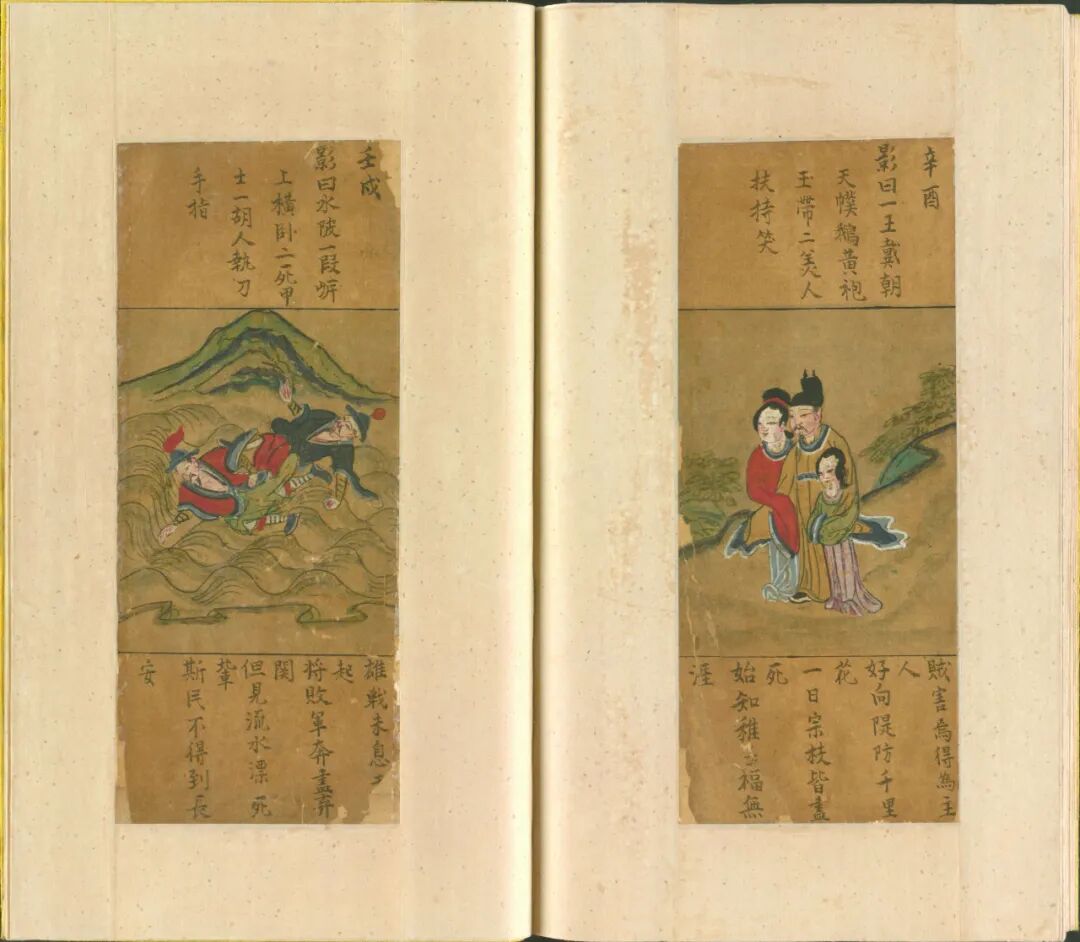 辛酉
影曰一王戴朝
天幞鵝黃袍
玉帶二美人
扶持笑
賊害焉得為主
人
好向隄防千里
花
一日宗扶皆盡
死
始知稚 福無
涯
壬戌
影曰水陂一段
上橫卧二死甲
士一胡人執刀
手指
雄戰未息
起
将敗軍奔盡弃
関
但見流水漂死
輩
斯民不得到長
安